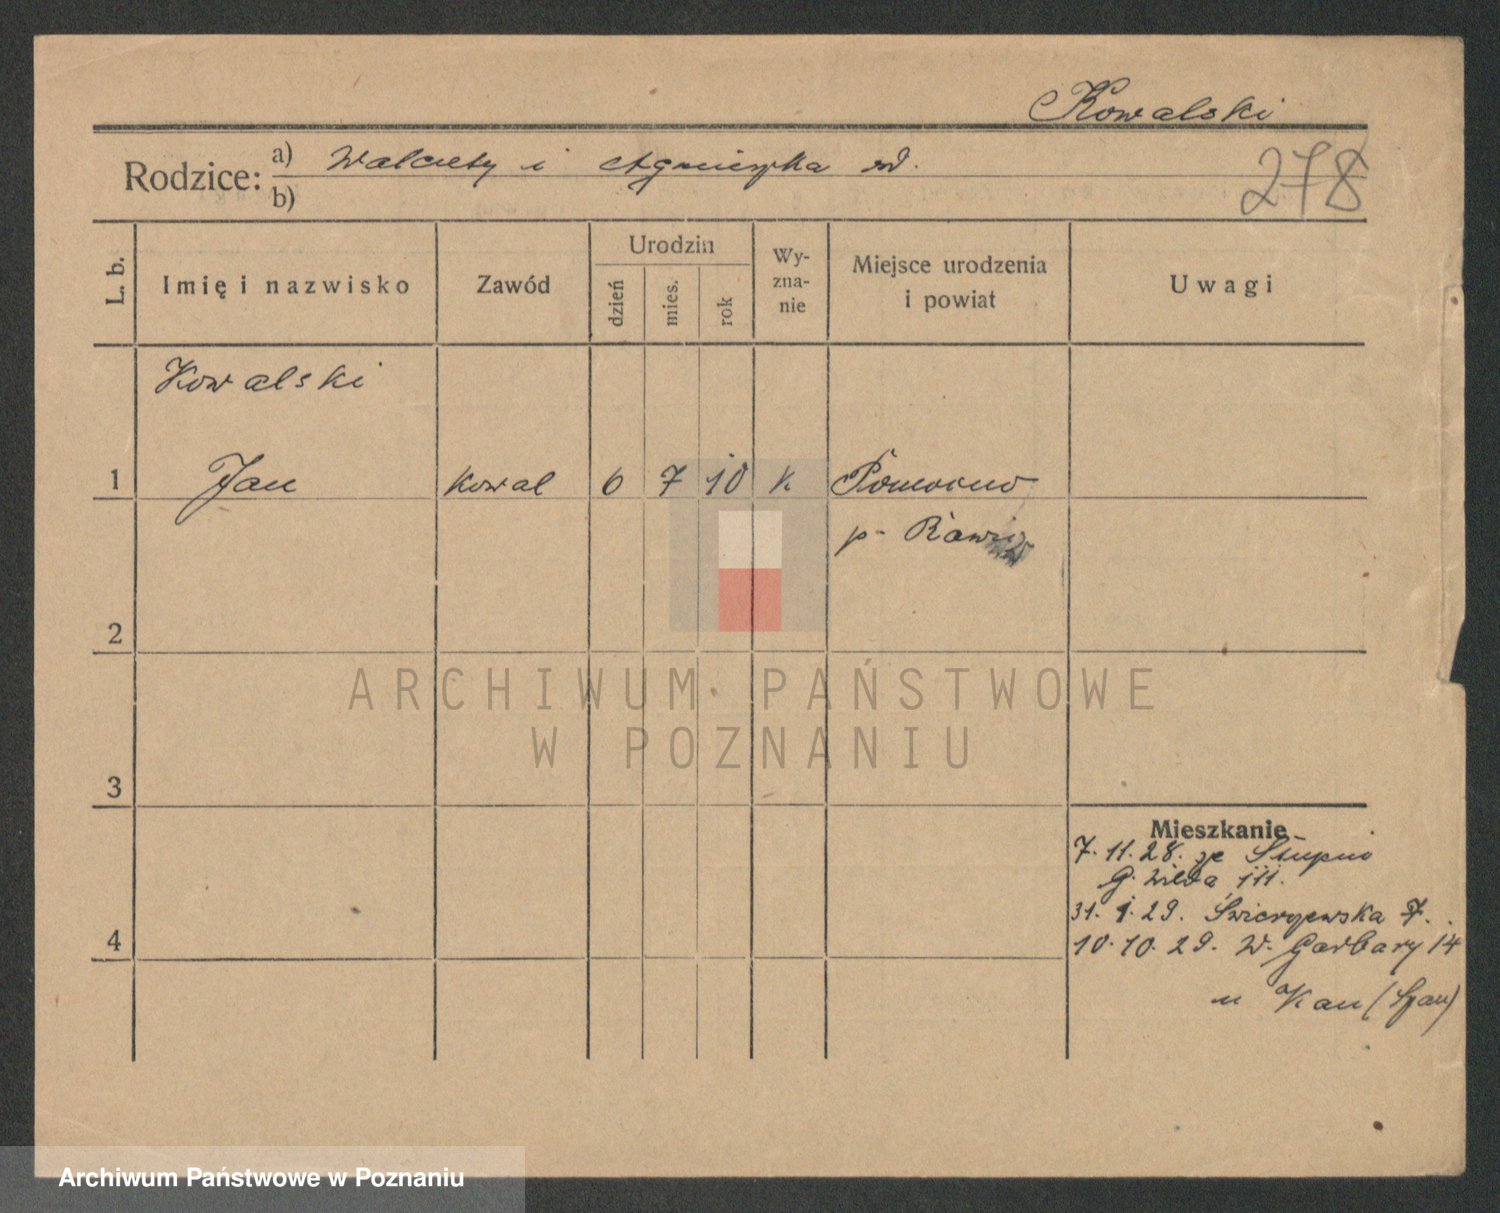 Kowalski
Rodzice: a) Walenty i Agnieszka
b)
278
L. b.
Imię i nazwisko
Zawód
Urodzin
dzień
mies.
rok
Wy-
zna-
nie
Miejsce urodzenia
i powiat
Uwagi
Kowalski
1 Jan kowal 6 7 10 k
p- Rawicz
2
ARCHIWUM PAŃSTWOWE
W POZNANIU
3
Mieszkanie
7. 11. 28. ze Słupni
G. Wilda
31. 1. 29. 7.
4
10. 10. 29. W. Garbary 14
u Kau
Archiwum Państwowe w Poznaniu